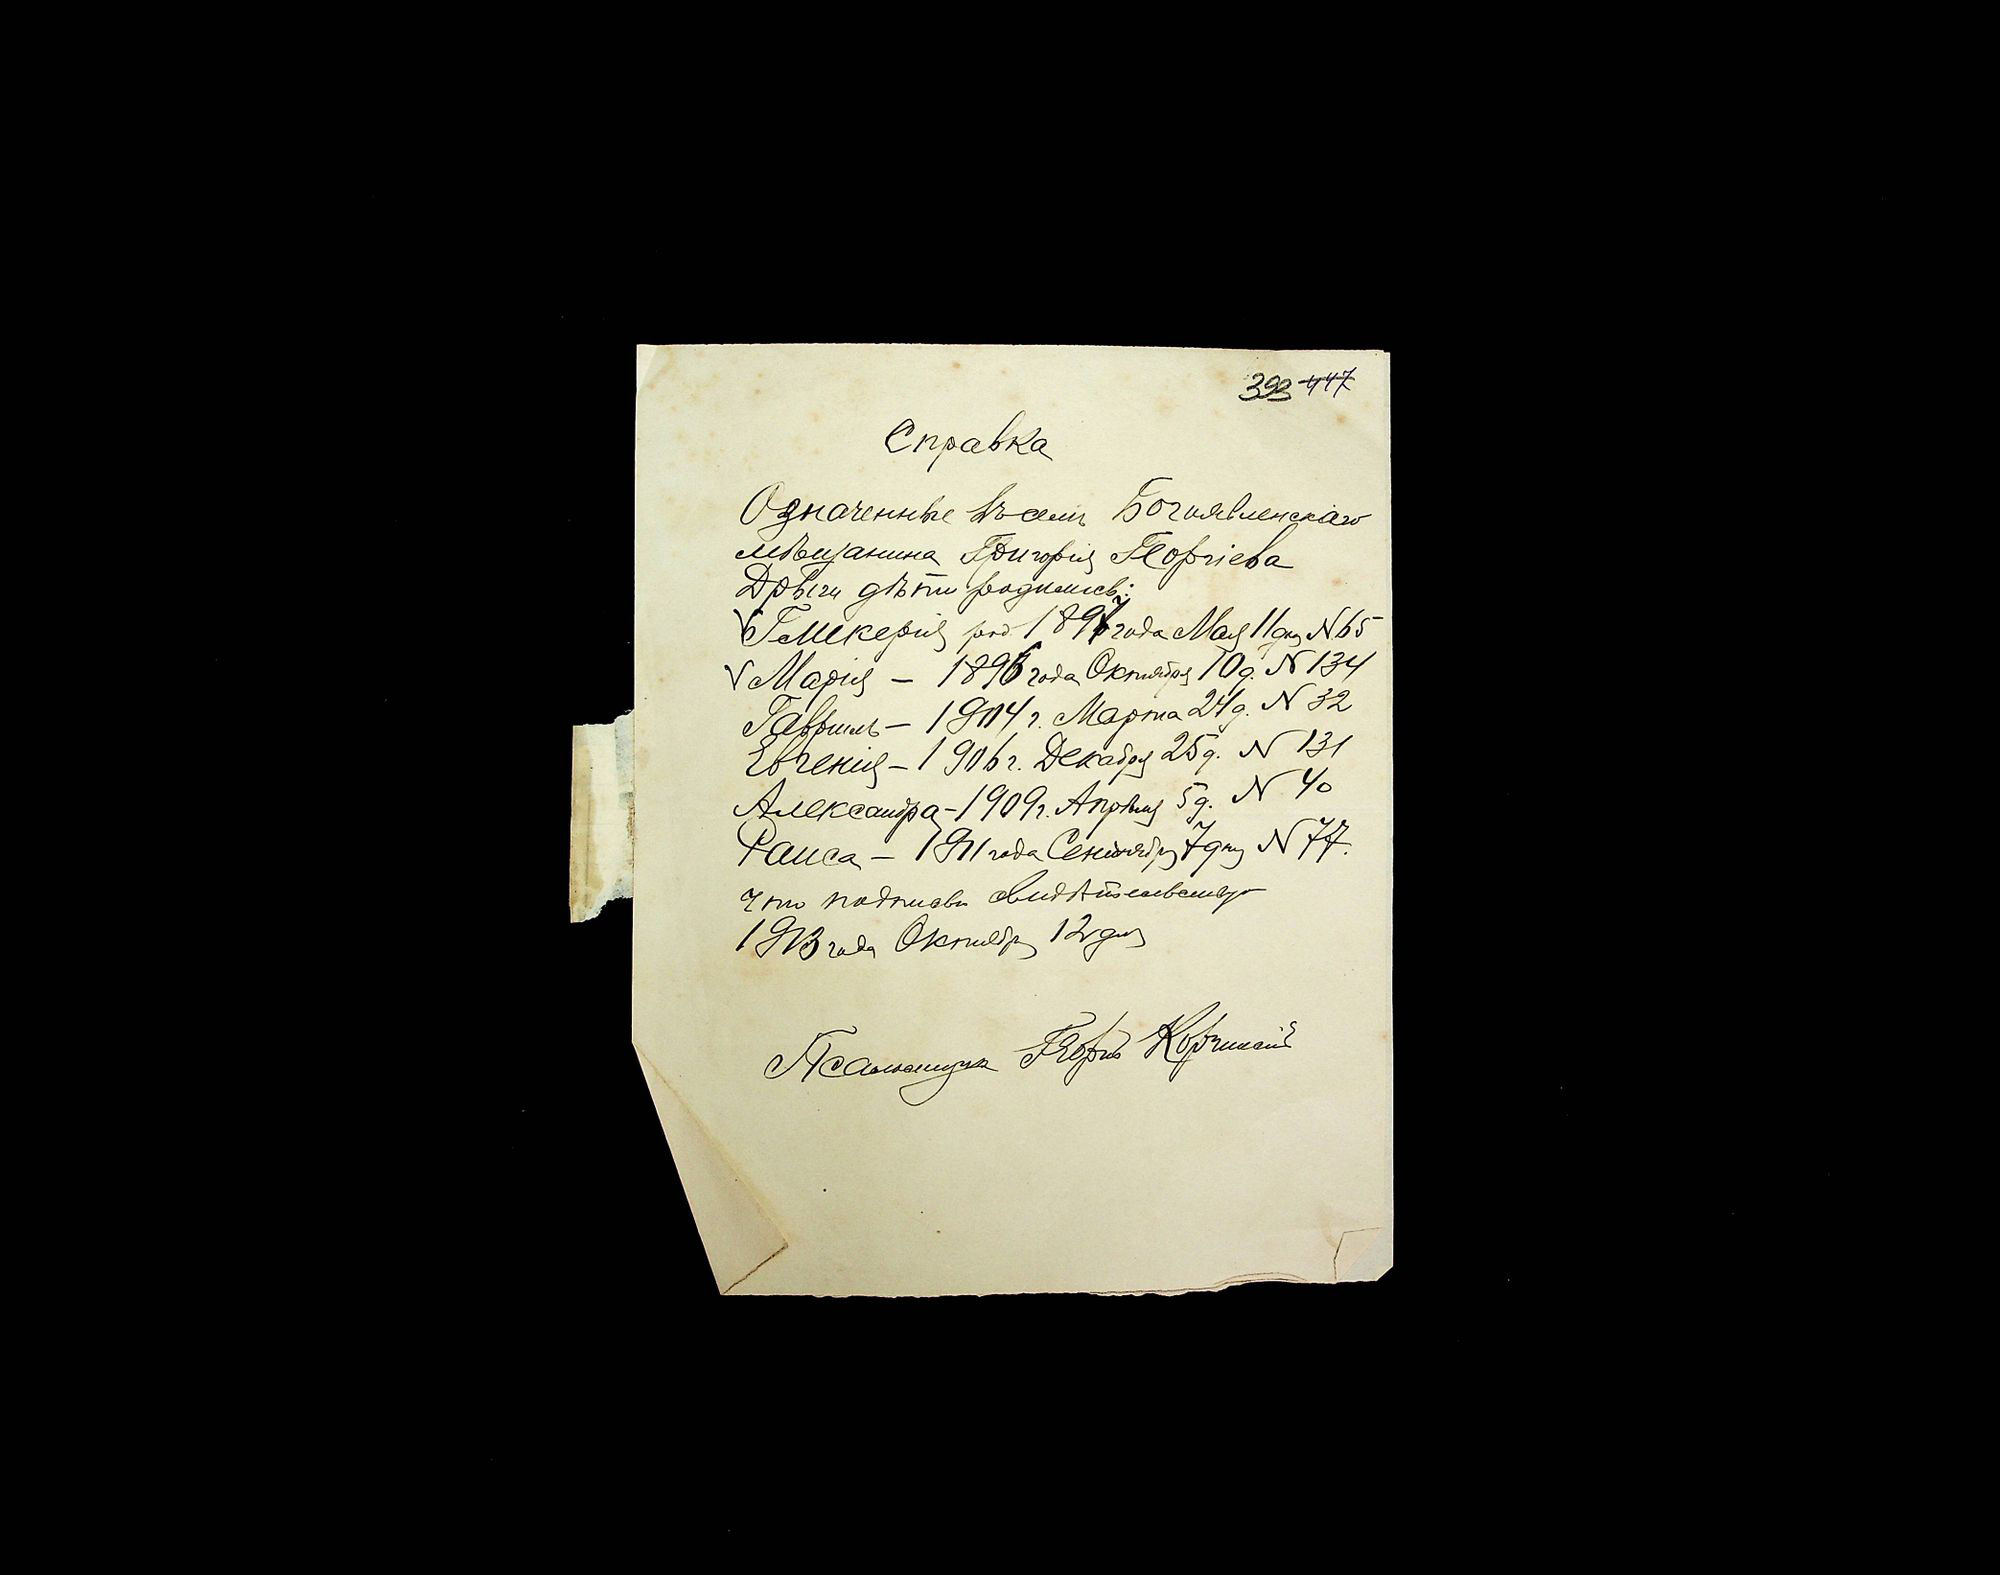 393 447
Справка
Означенные въ семъ Богоявленскаго
мѣщанина Григорія Георгіева
дѣти родились:
Гликерія род 1897 года Мая 11 дня N 65
Марія – 1896 года Октября 10 д. N 134
Гавріилъ – 1904 г. Марта 24 д. N 32
Евгенія – 1906 г. Декабря 25 д. N 131
Александра – 1909 г. Апрѣля 5 д. N 40
Раиса – 1911 года Сентября 7 дня N 77.
что подписью свидѣтельствую
1913 года Октября 12 дня
Псаломщикъ Георгій